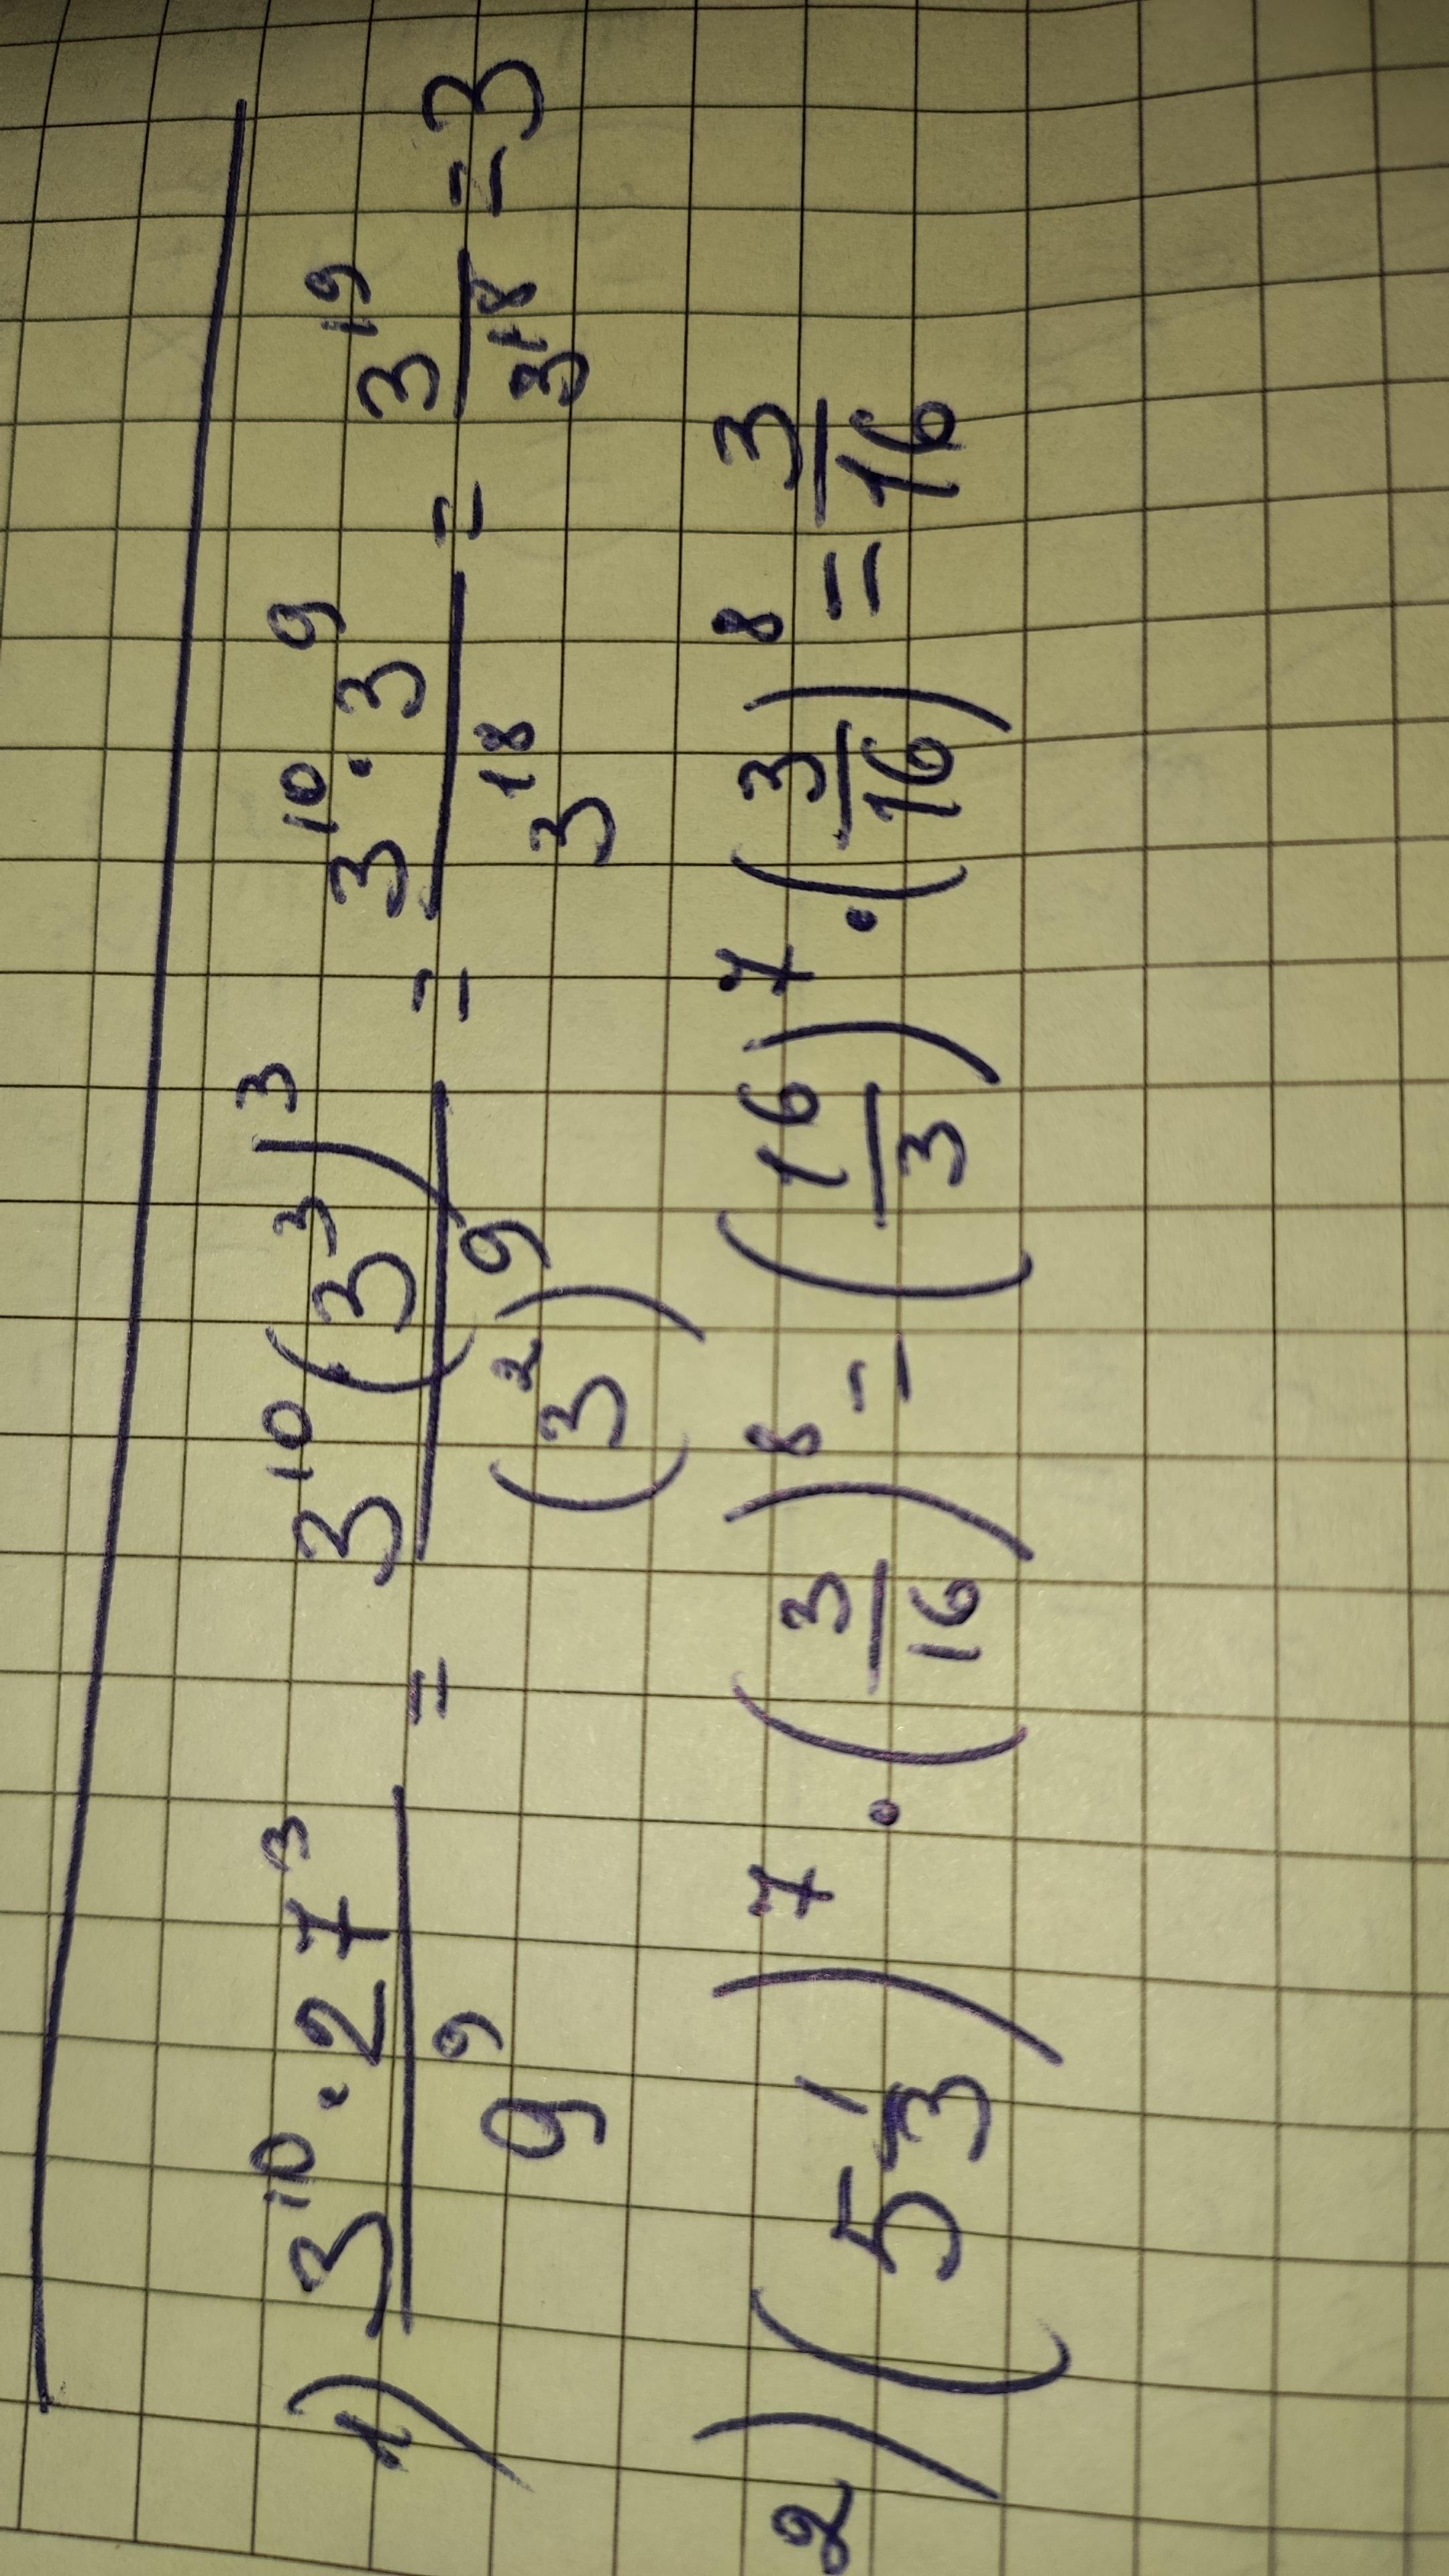 1) \frac{3^{10} \cdot 27^3}{9^9} = \frac{3^{10} (3^3)^3}{(3^2)^9} = \frac{3^{10} \cdot 3^9}{3^{18}} = \frac{3^{19}}{3^{18}} = 3
2) (5\frac{1}{3})^7 \cdot (\frac{3}{16})^8 = (\frac{16}{3})^7 \cdot (\frac{3}{16})^8 = \frac{3}{16}